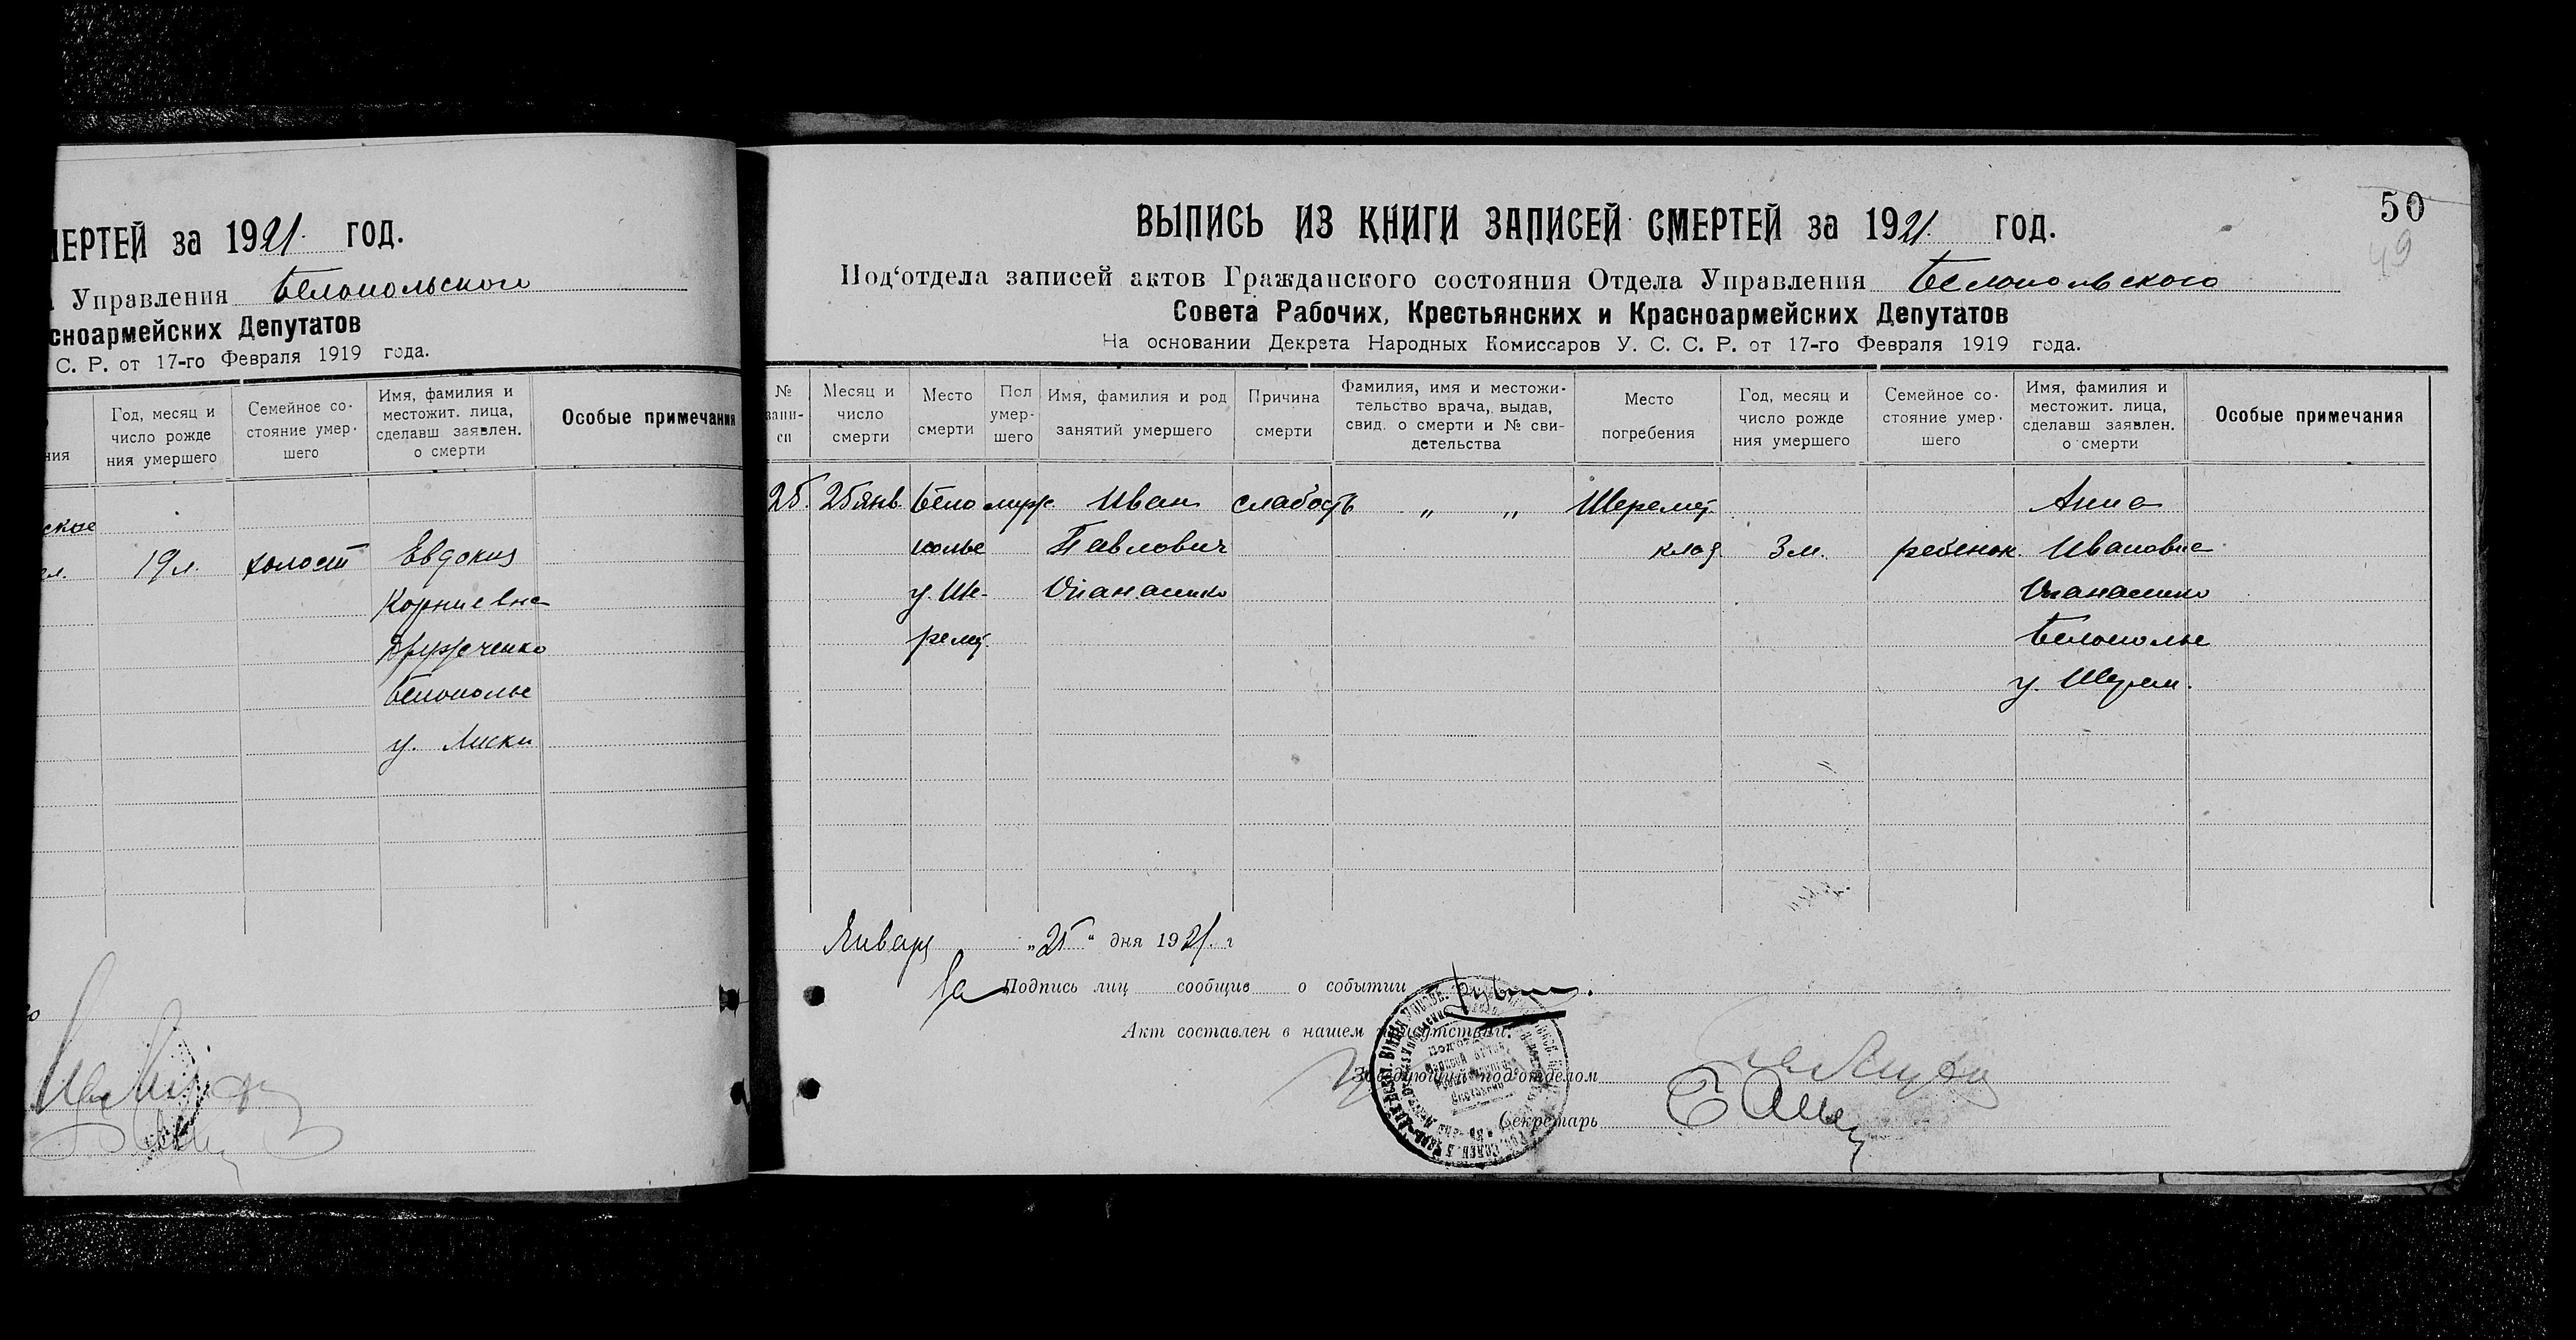 МЕРТЕЙ за 1921 год.
Управления Белопольского
сноармейских Депутатов
С. Р. от 17-го Февраля 1919 года.
ния
Год, месяц и
число рожде
ния умершего
Семейное со-
стояние умер-
шего
Имя, фамилия и
местожит. лица,
сделавш заявлен.
о смерти
Особые примечания
ское
19 л. холост Евдокия
Корниевна
Белополье
у. Лиски
50
49
ВЫПИСЬ ИЗ КНИГИ ЗАПИСЕЙ СМЕРТЕЙ за 1921 год.
Под'отдела записей актов Гражданского состояния Отдела Управления Белопольского
Совета Рабочих, Крестьянских и Красноармейских Депутатов
На основании Декрета Народных Комиссаров У. С. С. Р. от 17-го Февраля 1919 года.
№
запи-
си
Месяц и
число
смерти
Место
смерти
Пол
умер-
шего
Имя, фамилия и род
занятий умершего
Причина
смерти
Фамилия, имя и местожи-
тельство врача, выдав,
свид. о смерти и № сви-
детельства
Место
погребения
Год, месяц и
число рожде
ния умершего
Семейное со-
стояние умер-
шего
Имя, фамилия и
местожит. лица,
сделавш заявлен.
о смерти
Особые примечания
25. 25 янв. Бело муж. Иван слабость " " Шеремет. Анна
полье Павлович клад 3 м. ребенок. Ивановна
у. Ше-
ремет. Белополье
у. Шерем.
Январь "25" дня 1921. г
За Подпись лиц сообщив о событии
Акт составлен в нашем присутствии:
Заведующий под'отделом
Секретарь